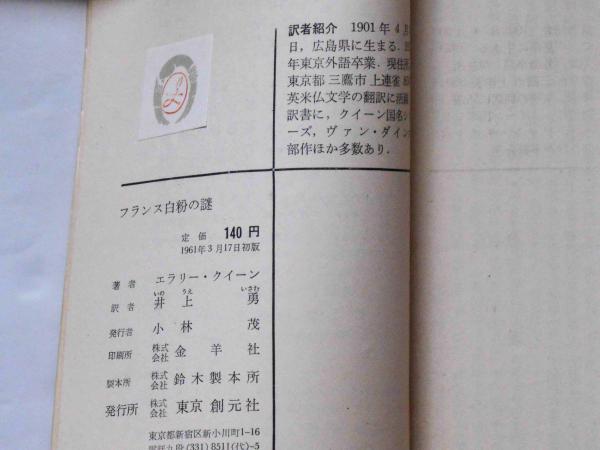 訳者紹介 1901年4月
日，広島県に生まる．
年東京外語卒業．現住所
東京都三鷹市上連雀
英米仏文学の翻訳に
訳書に，クイーン国名シ
ーズ，ヴァン・ダイン
部作ほか多数あり．
フランス白粉の謎
定価 140円
1961年3月17日初版
著者 エラリー・クイーン
いの うえ いさむ
訳者 井上勇
発行者 小林茂
印刷所 株式会社 金羊社
製本所 株式会社 鈴木製本所
発行所 株式会社 東京創元社
東京都新宿区新小川町1-16
電話九段(331)8511(代)-5